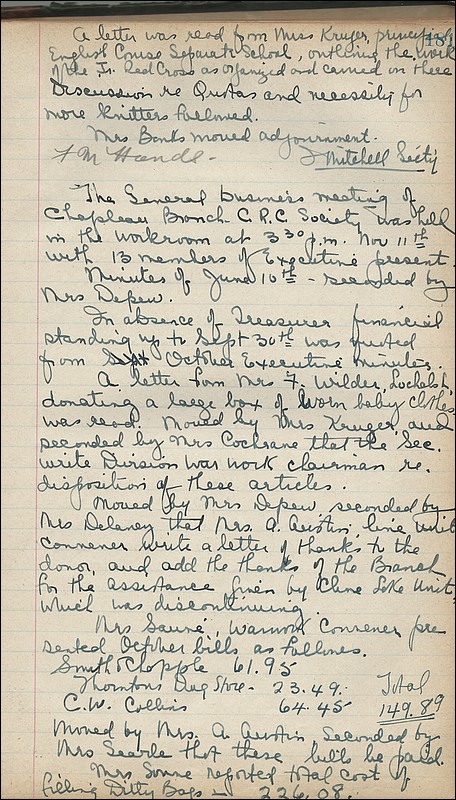 A letter was read from Miss Kruger, principal
English Course Separate School, outlining the work
of the Jr. Red Cross as organized and carried on there
Discussion re Quotas and necessity for
more knitters followed.
Mrs Banks moved adjournment.
F M Hands - F Mitchell Sec'ty
The General business meeting of
Chapleau Branch C.R.C. Society was held
in the workroom at 3 30 p.m. Nov 11th
with 13 members of Executive present.
Minutes of June 10th - seconded by
Mrs Depew.
In absence of Treasurer financial
standing up to Sept 30th was quoted
from October Executive minutes.
A letter from Mrs F. Wilder,
donating a large box of worn baby clothes
was read. Moved by Mrs Kruger and
seconded by Mrs Cochrane that the Sec.
write Division War work chairman re.
disposition of these articles.
Moved by Mrs Depew, seconded by
Mrs Delaney that Mrs. A. Austin, line unit
convener write a letter of thanks to the
donor, and add the thanks of the Branch
for the assistance given by Lake Unit
which was discontinuing.
Mrs , Warwork Convener pre
sented October bills as follows.
Smith & Chapple 61.95
Thorntons Drug Store - 23.49. Total
C.W. Collins 64.45 149.89
Moved by Mrs. A. Austin Seconded by
Mrs Searle that these bills be paid.
Mrs reported total cost of
filling Ditty Bags - 226.08.